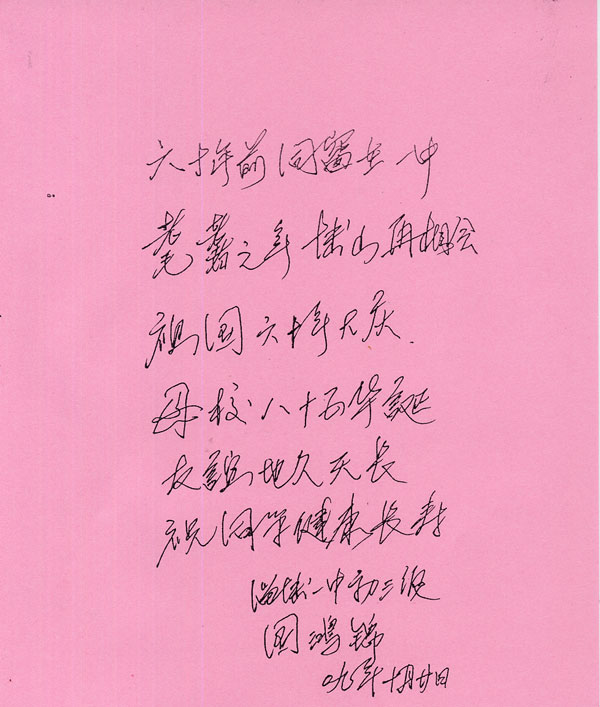 六十年前同窗在一中
耄耋之年博山再相会
祖国六十年大庆
母校八十五华誕
友誼地久天长
祝同学健康长寿
淄博一中初三级
国鸿锦
〇九年十月廿日